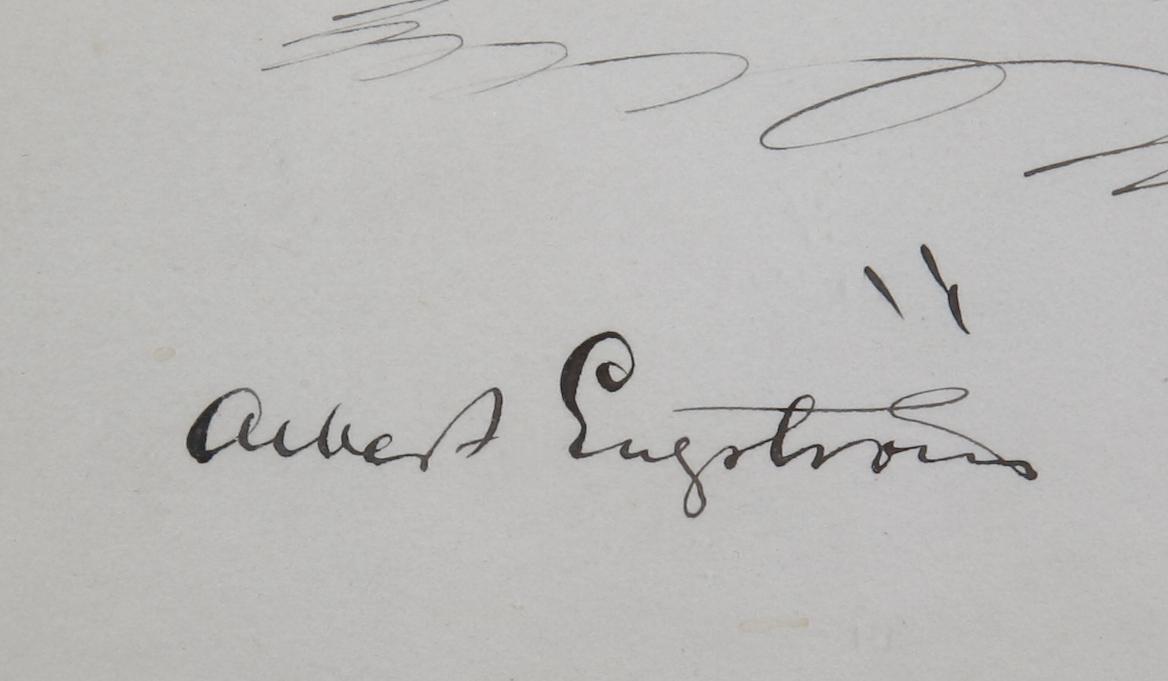 Albert Engström